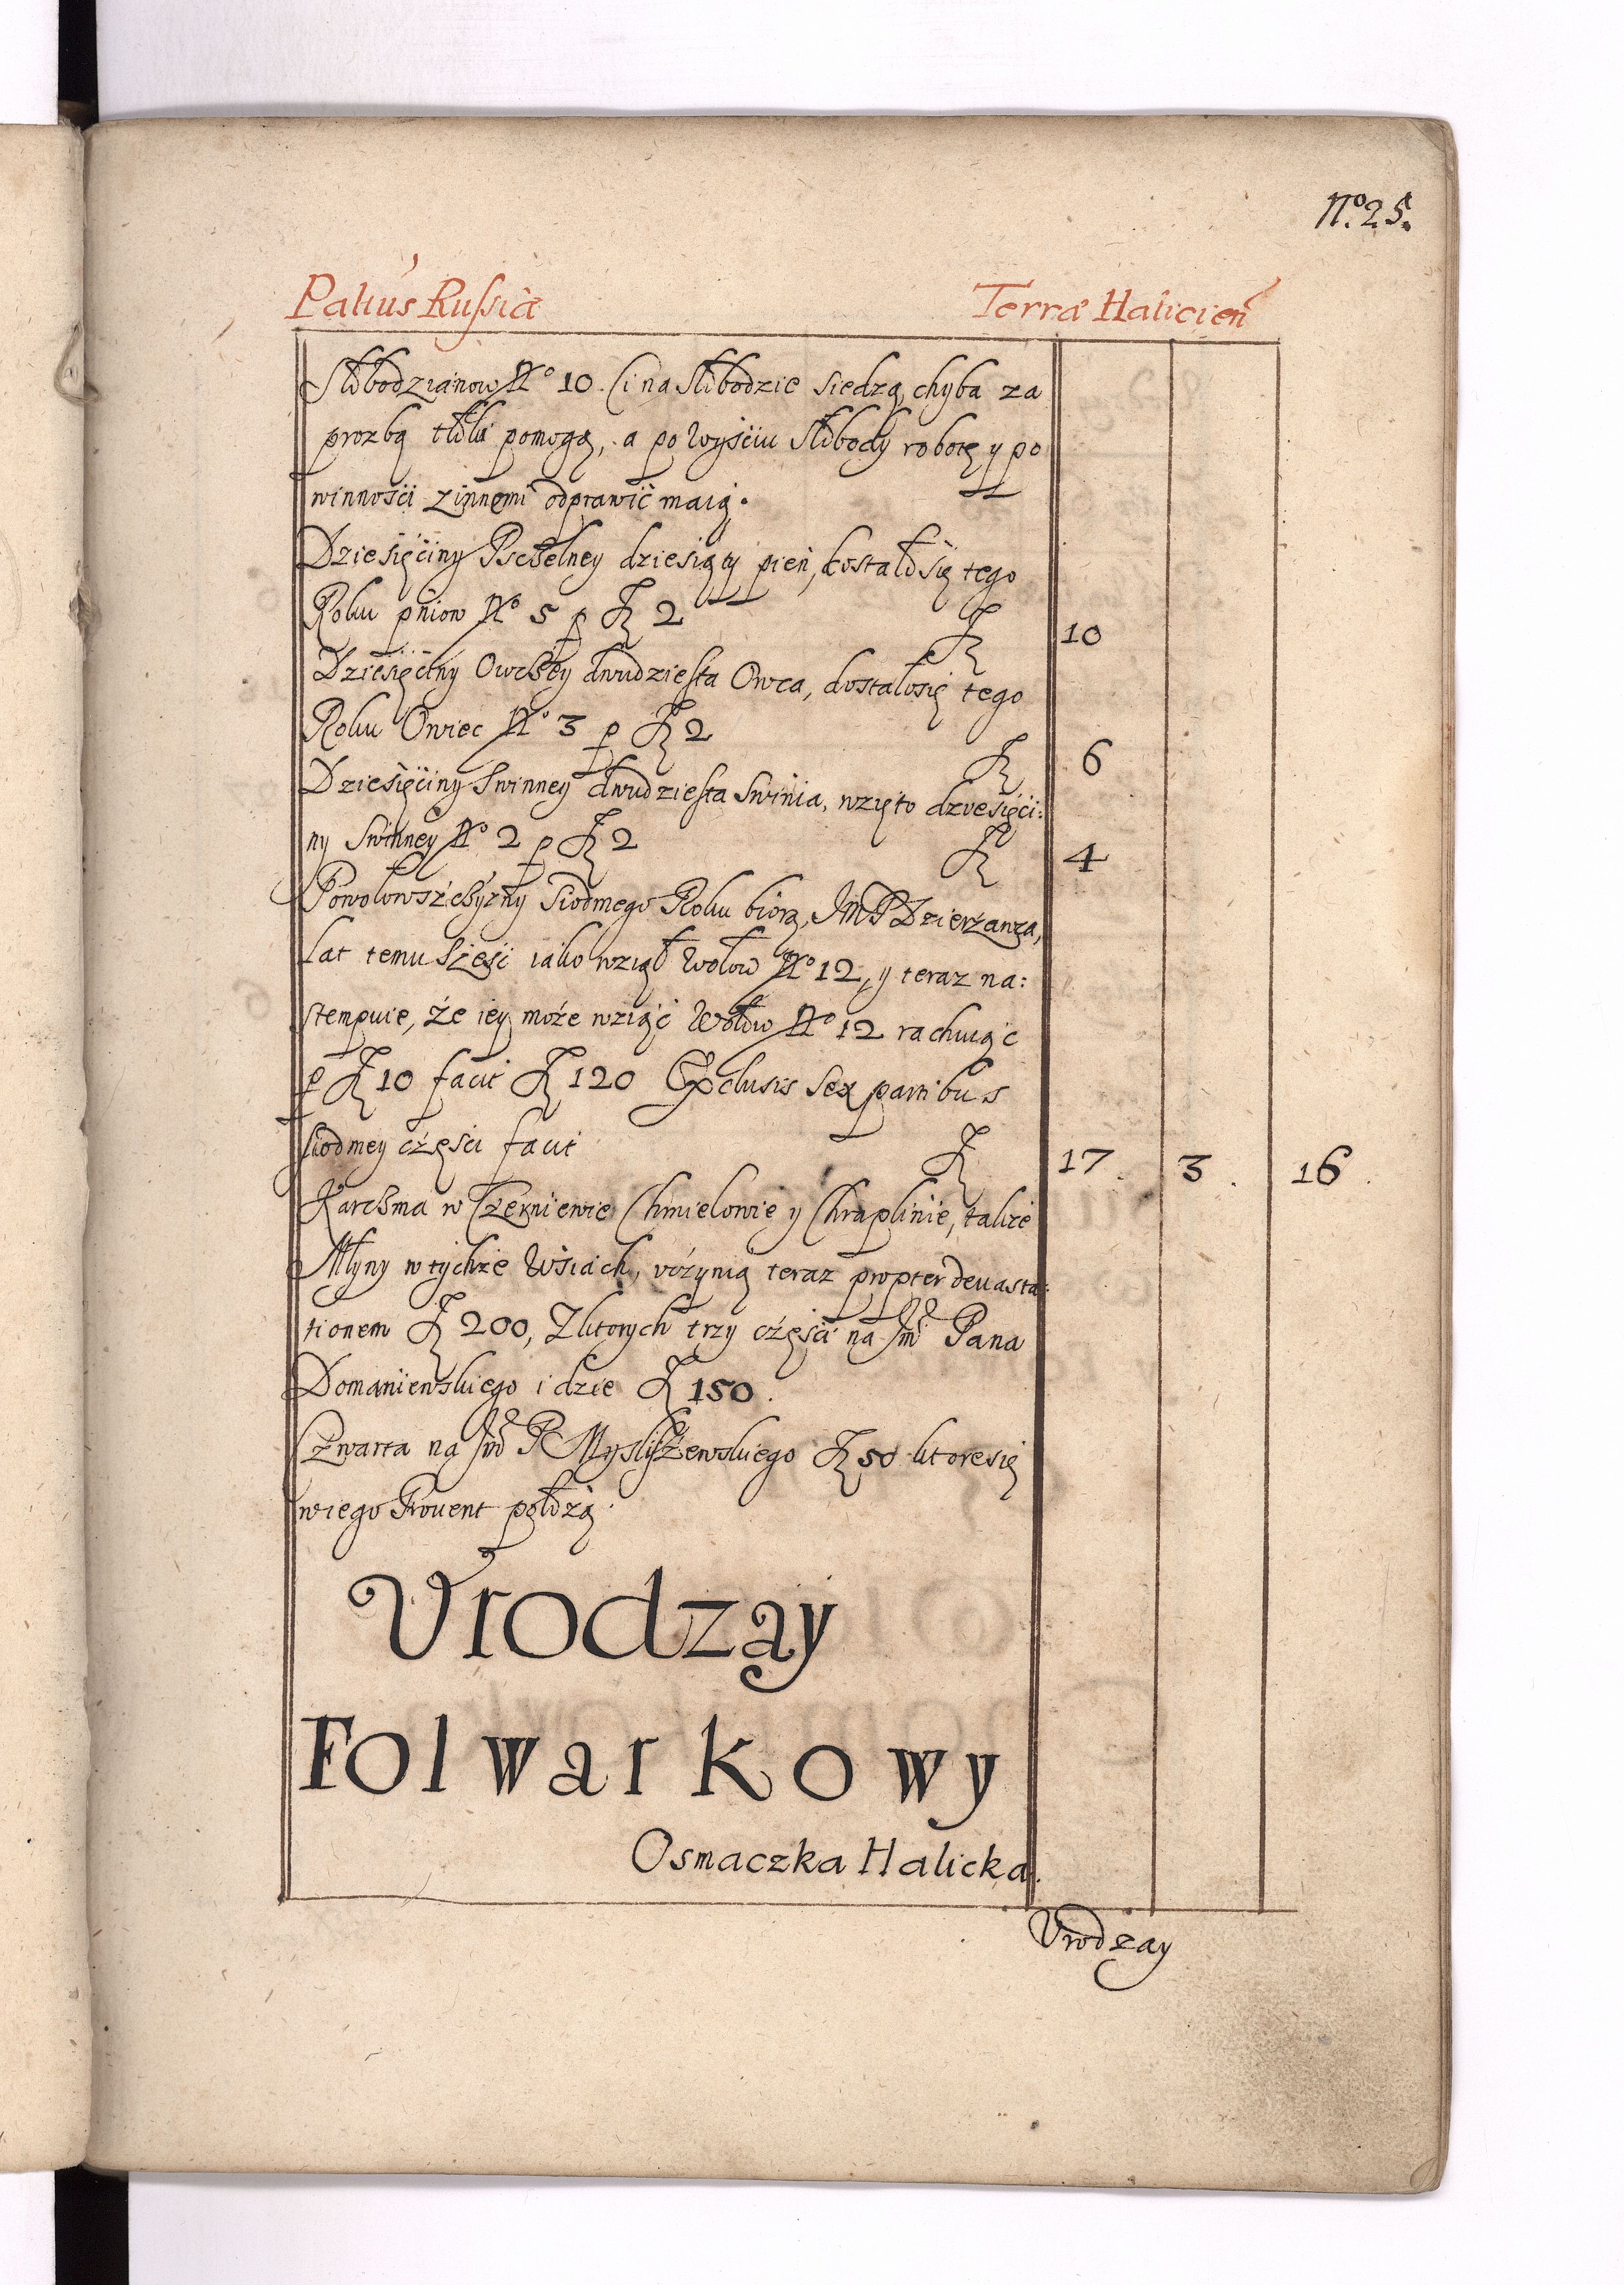 No. 25.
Paltus Russiæ Terræ Haliciens
Słobodzianow No 10. Ci na Słobodzie siedzą, chyba za
prozbą tłoką pomogą, a po wyściu Słobody robotę y po
winnośći zinnemi odprawić maią.
Dziesięćiny Psczelney dziesiąty pień, dostało się tego
Roku pniow No 5 p fl 2 fl 10
Dziesięćiny Owczey dwudziesta Owca, dostało się tego
Roku Owiec No 3 p fl 2 fl 6
Dziesięćiny Swinney dwudziesta Swinia, wzięto dziesięći:
ny Swinney No 2 p fl 2 fl 4
Powołowszczyzny Siodmego Roku biorą, JMP Dzierzawca,
Lat temu Sześć iako wziął Wołow No 12, y teraz na:
stempuie, że iey może wziąć Wołow No 12 rachuiąc
p fl 10 facit fl 120 Exclusis Sex partibus
siodmey częśći facit fl 17. 3. 16.
Karczma w Czerniewie Chmielowie y Chraplinie, także
Młyny w tychże Wsiach, vczynią teraz propter deuasta:
tionem fl 200, Zktorych trzy częśći na Jmci Pana
Domaniewskiego idzie fl 150.
Czwarta na Jmci P Mysliszewskiego fl 50 ktore się
wiego Prouent połozą.
Vrodzay
Folwarkowy
Osmaczka Halicka.
Vrodzay